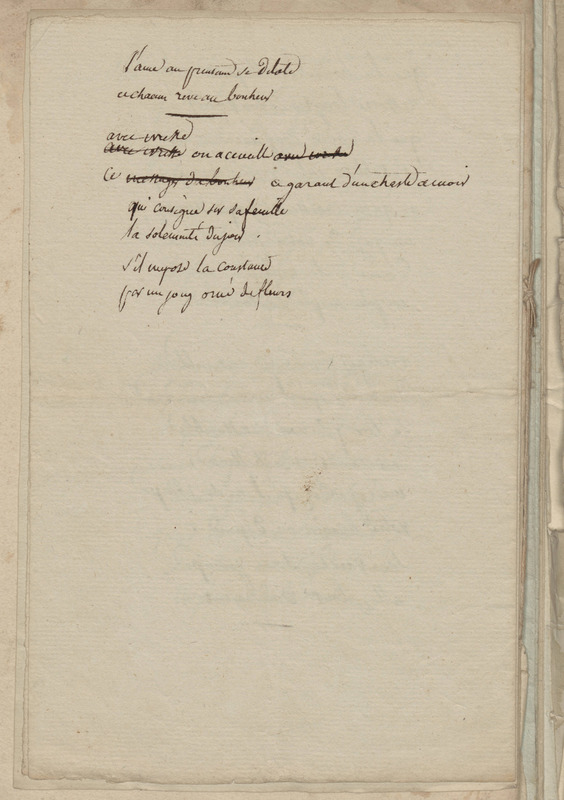 l'ame au presend se dilate
et chacun reve au bonheur
avec ivresse
avec ivresse on acceuille avec ivresse
Ce message du bonheur ce garant d'un chaste amour
qui consigne sur sa feuille
la solemnité du jour.
s'il impose la constance
par un joug orné de fleurs